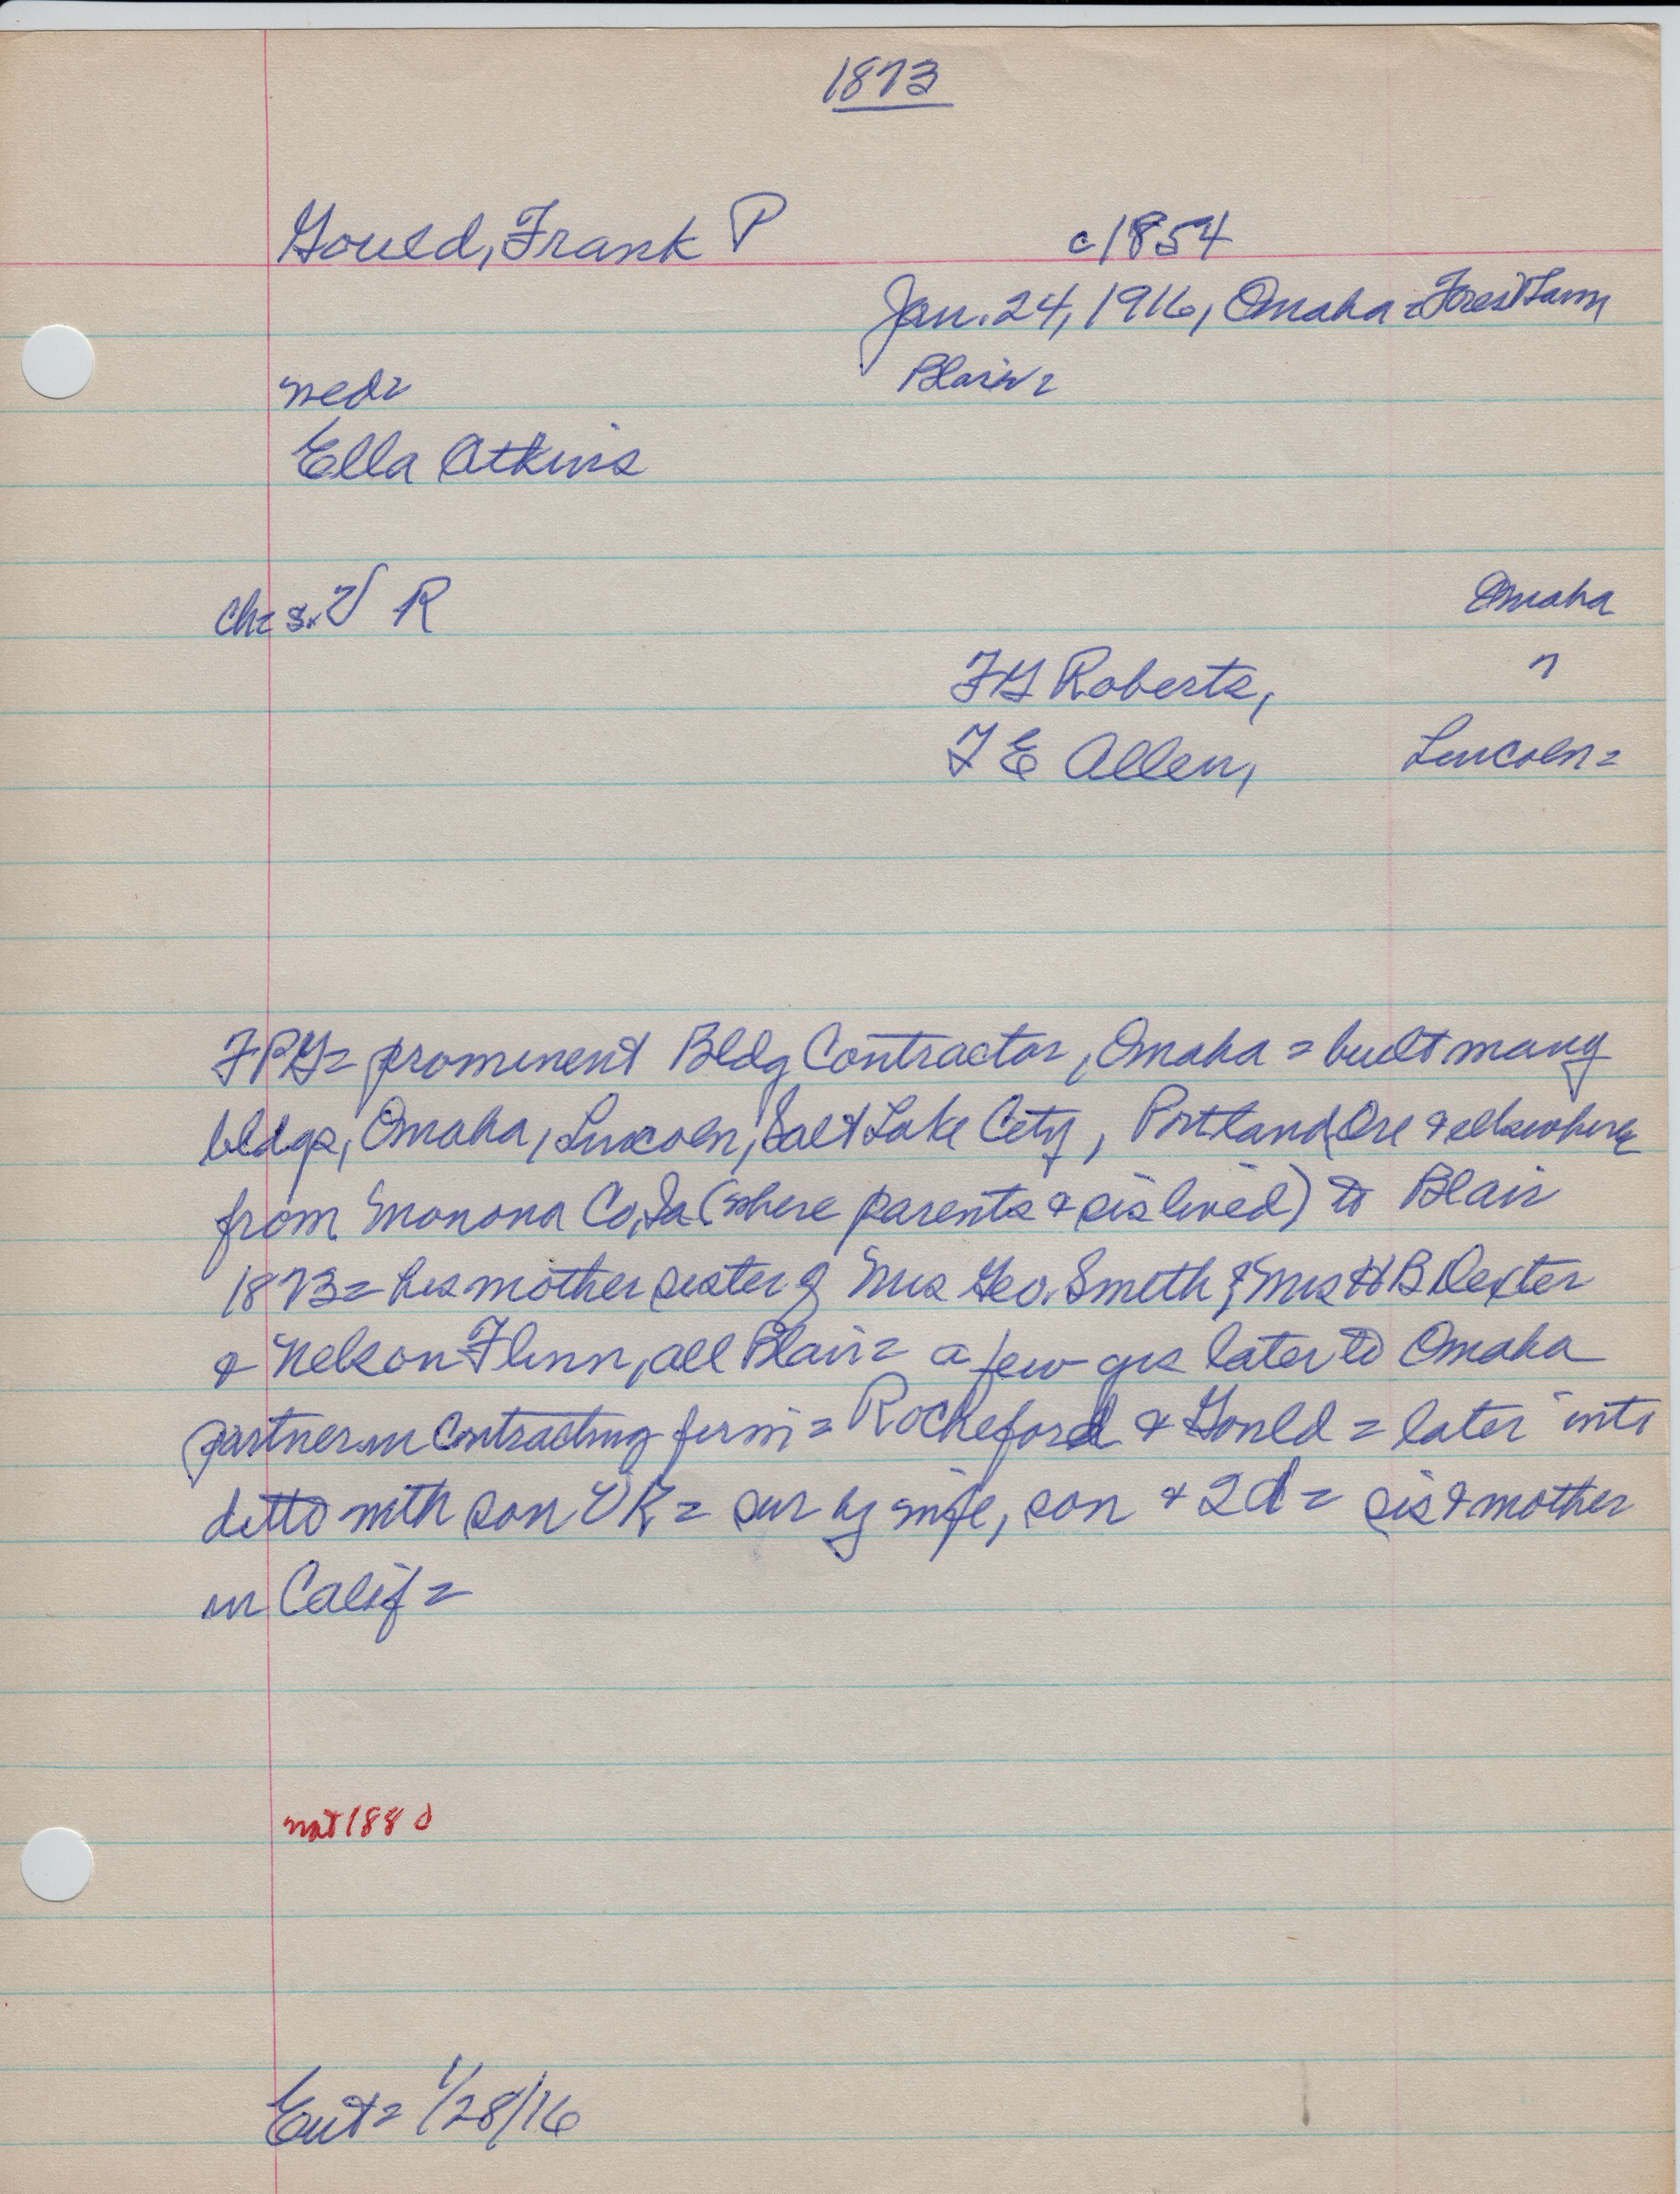 1873
Gould, Frank P c1854
Jan. 24, 1916, Omaha = Forest Lawn
wed= Blair=
Ella Atkins
Ch= s. V R Omaha
F G Roberts, "
F E Allen, Lincoln=
FPG= prominent Bldg Contractor, Omaha = built many
bldgs, Omaha, Lincoln, Salt Lake City, Portland, Ore & elsewhere
from Monona Co, Ia (where parents & sis lived) to Blair
1873= his mother sister of Mrs Geo. Smith & Mrs H B Dexter
& Nelson Flinn, all Blair= a few yrs later to Omaha
partner in contracting firm = Rocheford & Gould = later into
ditto with son VR= sur by wife, son & 2d= sis & mother
in Calif=
not 188
Ent= 1/28/16